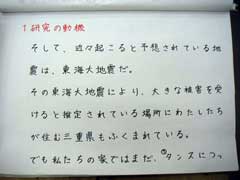 1 研究の動機
そして、近々起こると予想されている地
震は、東海大地震だ。
その東海大地震により、大きな被害を受
けると推定されている場所にわたしたち
が住む三重県もふくまれている。
でも私たちの家ではまだ、①タンスにつっ